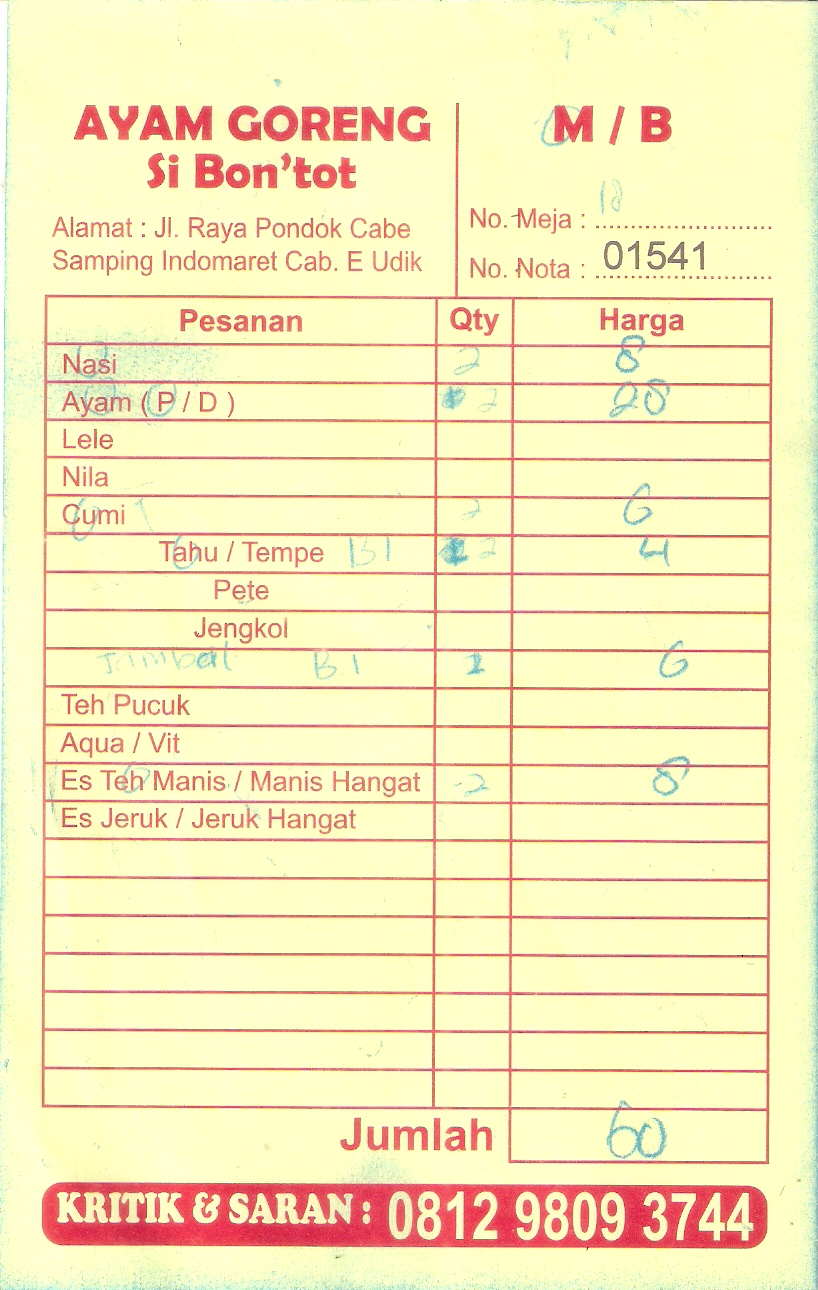 AYAM GORENG
Si Bon'tot
Alamat : Jl. Raya Pondok Cabe
Samping Indomaret Cab. E Udik
M / B
No. Meja : 18
No. Nota : 01541
Pesanan Qty Harga
Nasi 2 8
Ayam ( P / D ) 2 28
Lele
Nila
Cumi 2 6
Tahu / Tempe B1 2 4
Pete
Jengkol
Jambal B1 6
Teh Pucuk
Aqua / Vit
Es Teh Manis / Manis Hangat 2 8
Es Jeruk / Jeruk Hangat
Jumlah 60
KRITIK & SARAN : 0812 9809 3744